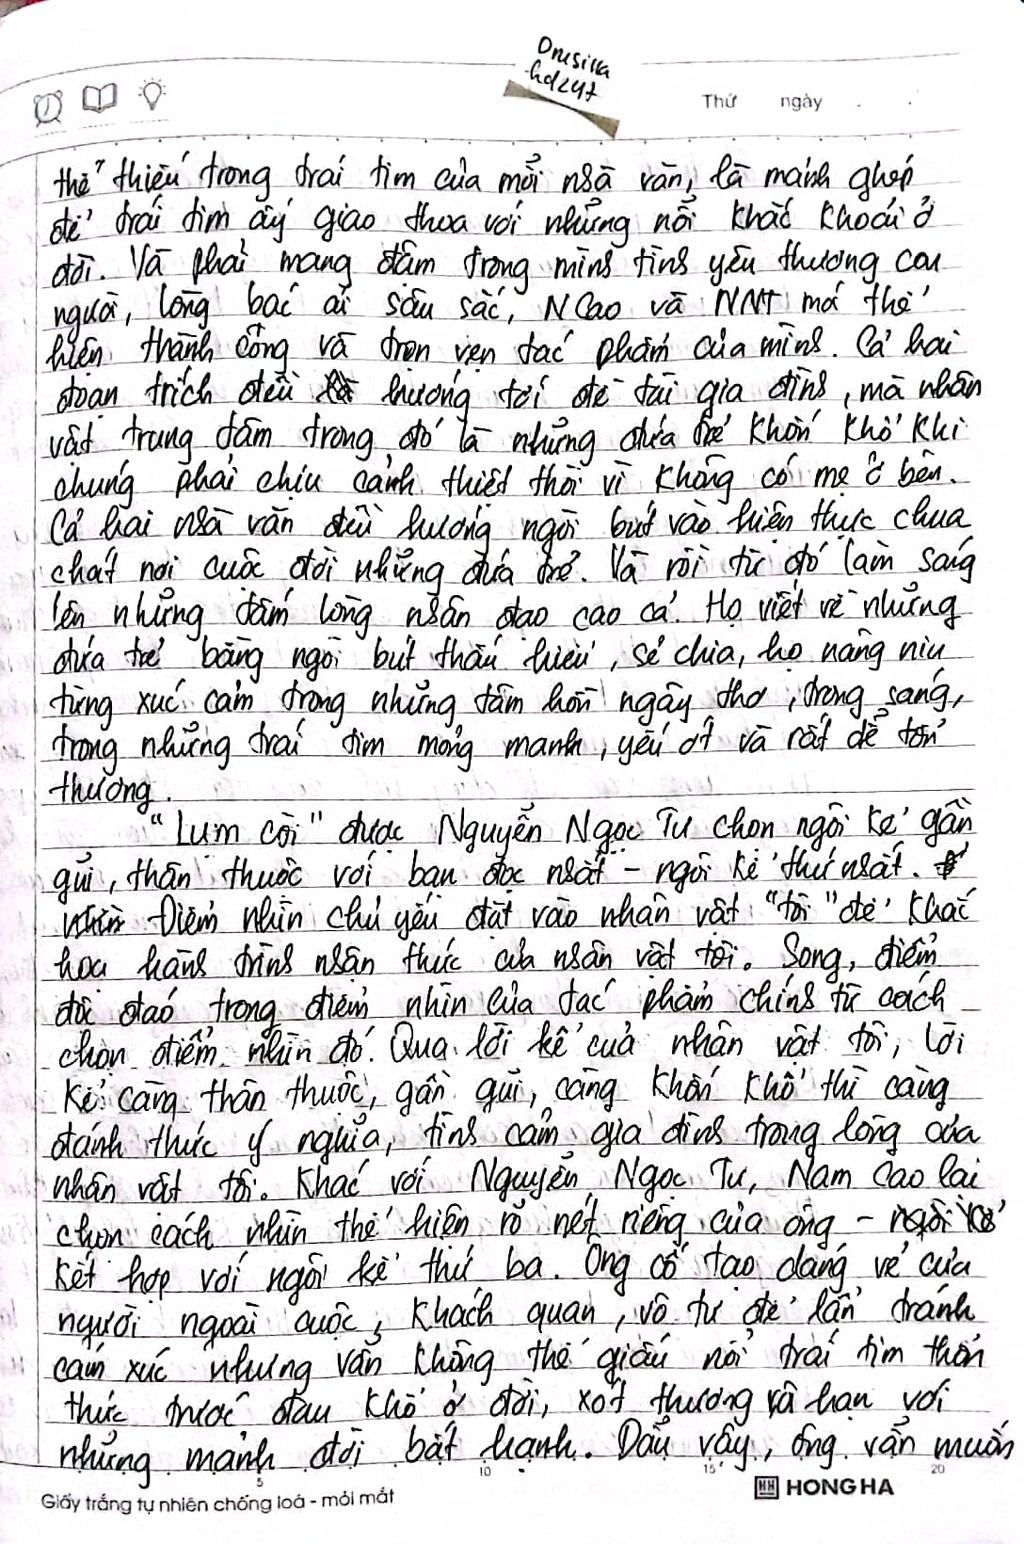 Drusilla
hd247
Thứ ngày . .
thể thiếu trong trái tim của mỗi nhà văn, là mảnh ghép
để trái tim ấy giao thoa với những nỗi khắc khoải ở
đời. Và phải mang đậm trong mình tình yêu thương con
người, lòng bác ái sâu sắc, NCao và NNT mới thể
hiện thành công và trọn vẹn tác phẩm của mình. Cả hai
đoạn trích đều hướng tới đề tài gia đình, mà nhân
vật trung tâm trong đó là những đứa trẻ khốn khổ khi
chúng phải chịu cảnh thiệt thòi vì không có mẹ ở bên.
Cả hai nhà văn đều hướng ngòi bút vào hiện thực chua
chát nơi cuộc đời những đứa trẻ. Và rồi từ đó làm sáng
lên những tấm lòng nhân đạo cao cả. Họ viết về những
đứa trẻ bằng ngòi bút thấu hiểu, sẻ chia, họ nâng niu
từng xúc cảm trong những tâm hồn ngây thơ, trong sáng,
trong những trái tim mỏng manh, yếu ớt và rất dễ tổn
thương.
"Lụm còi" được Nguyễn Ngọc Tư chọn ngôi kể gần
gũi, thân thuộc với bạn đọc nhất - ngôi kể thứ nhất.
nhìn Điểm nhìn chủ yếu đặt vào nhân vật "tôi" để khắc
họa hành trình nhận thức của nhân vật tôi. Song, điểm
độc đáo trong điểm nhìn của tác phẩm chính từ cách
chọn điểm nhìn đó. Qua lời kể của nhân vật tôi, lời
kể càng thân thuộc, gần gũi, càng khốn khổ thì càng
đánh thức ý nghĩa, tình cảm gia đình trong lòng của
nhân vật tôi. Khác với Nguyễn Ngọc Tư, Nam Cao lại
chọn cách nhìn thể hiện rõ nét riêng của ông - ngôi kể
kết hợp với ngôi kể thứ ba. Ông cố tạo dáng vẻ của
người ngoài cuộc, khách quan, vô tư để lẩn tránh
cảm xúc nhưng vẫn không thể giấu nổi trái tim thổn
thức trước đau khổ ở đời, xót thương và hạn với
những mảnh đời bất hạnh. Dẫu vậy, ông vẫn muốn
5 10 15 20
Giấy trắng tự nhiên chống loá - mỏi mắt
HH HONG HA